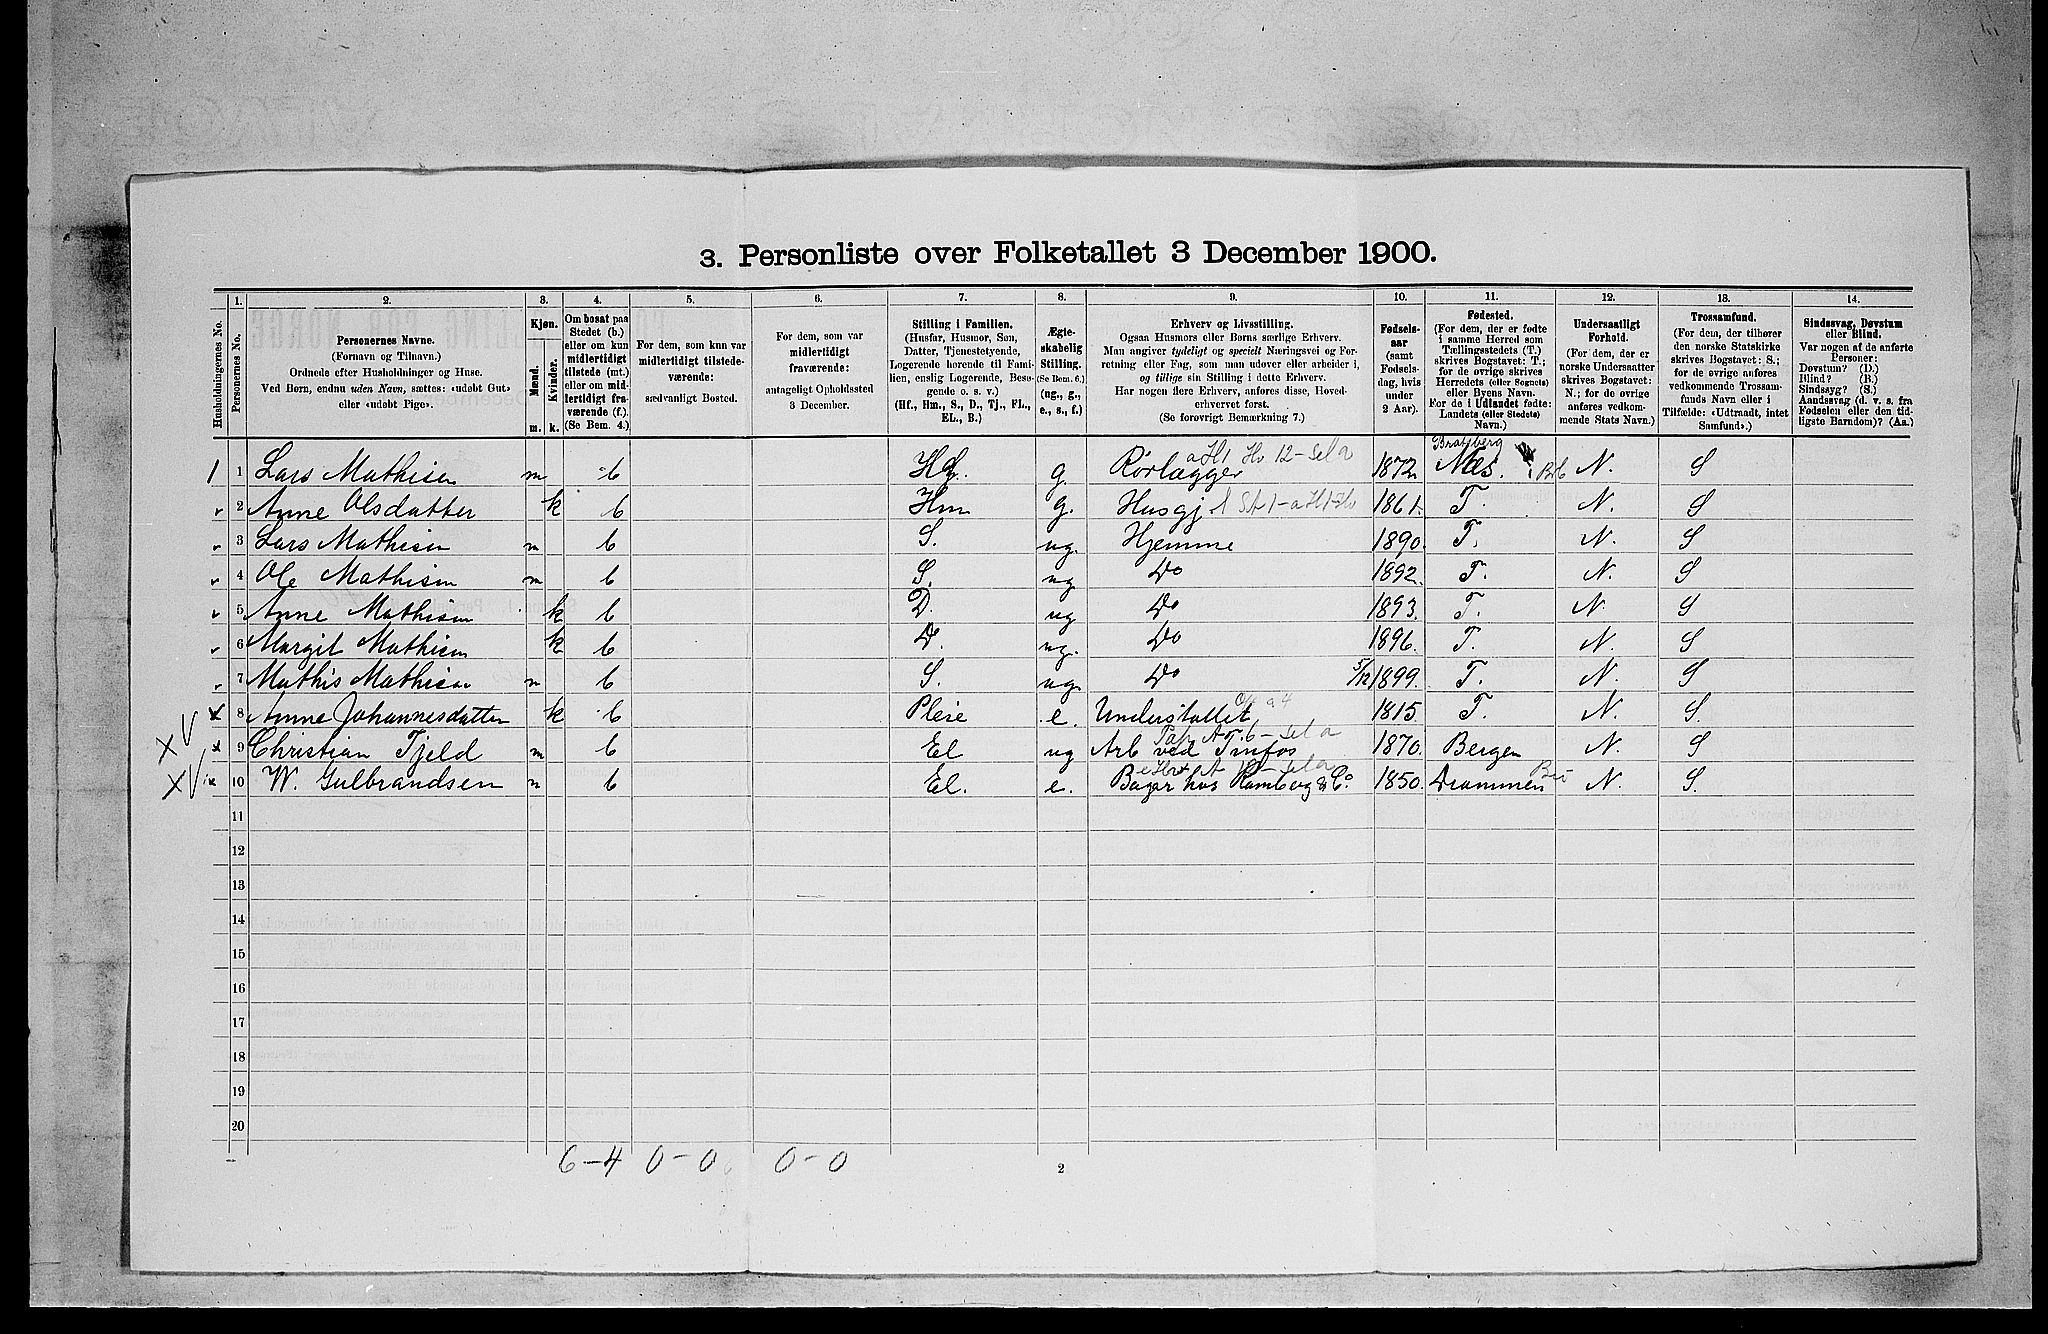 3. Personliste over Folketallet 3 December 1900.
1. 2. 3. 4. 5. 6. 7. 8. 9. 10. 11. 12. 13. 14.
Husholdningernes No.
Personernes No.
Personernes Navne.
(Fornavn og Tilnavn.)
Ordnede efter Husholdninger og Huse.
Ved Børn, endnu uden Navn, sættes: «udøbt Gut»
eller «udøbt Pige».
Kjøn.
Mænd.
Kvinder.
m. k.
Om bosat paa
Stedet (b.)
eller om kun
midlertidigt
tilstede (mt.)
eller om mid-
lertidigt fra-
værende (f.).
(Se Bem. 4.)
For dem, som kun var
midlertidigt tilstede-
værende:
sædvanligt Bosted.
For dem, som var
midlertidigt
fraværende:
antageligt Opholdssted
3 December.
Stilling i Familien.
(Husfar, Husmor, Søn,
Datter, Tjenestetyende,
Logerende hørende til Fami-
lien, enslig Logerende, Besø-
gende o. s. v.)
(Hf., Hm., S., D., Tj., FL.,
EL., B.)
Ægte-
skabelig
Stilling.
(Se Bem. 6.)
(ug., g.,
e., s., f.)
Erhverv og Livsstilling.
Ogsaa Husmors eller Børns særlige Erhverv.
Man angiver tydeligt og specielt Næringsvei og For-
retning eller Fag, som man udøver eller arbeider i,
og tillige sin Stilling i dette Erhverv.
Har nogen flere Erhverv, anføres disse, Hoved-
erhvervet først.
(Se forøvrigt Bemærkning 7.)
Fødsels-
aar
(samt
Fødsels-
dag, hvis
under
2 Aar).
Fødested.
(For dem, der er fødte
i samme Herred som
Tællingsstedets (T.)
skrives Bogstavet: T.;
for de øvrige skrives
Herredets (eller Sognets)
eller Byens Navn.
For de i Udlandet fødte:
Landets (eller Stedets)
Navn.)
Undersaatligt
Forhold.
(For dem, der er
norske Undersaatter
skrives Bogstavet:
N.; for de øvrige
anføres vedkom-
mende Stats Navn.)
Trossamfund.
(For dem, der tilhører
den norske Statskirke
skrives Bogstavet: S.;
for de øvrige anføres
vedkommende Trossam-
funds Navn eller i
Tilfælde: «Udtraadt, intet
Samfund».)
Sindssvag, Døvstum
eller Blind.
Var nogen af de anførte
Personer:
Døvstum? (D.)
Blind? (B.)
Sindssyg? (S.)
Aandssvag (d. v. s. fra
Fødselen eller den tid-
ligste Barndom)? (Aa.)
1 1 Lars Mathisen m b Hf. g. Rørlægger 1872 Næs. N. S
2 Anne Olsdatter k b Hm g. Husgj 1861. T. N. S
3 Lars Mathisen m b S. ug. Hjemme 1890. T. N. S
4 Ole Mathisen m b S. ug Do 1892. T. N. S
5 Anne Mathisen k b D. ug Do 1893. T. N. S
6 Margit Mathisen k b D. ug. Do 1896. T. N. S
7 Mathis Mathisen m b S. ug. Do 5/12 1899. T. N. S
8 Anne Johannesdatter k b Pleie e. Understøttet 1815. T. N. S.
9 Christian Tjeld m b El ug Arb ved Tinfos 1870. Bergen N. S
10 W. Gulbrandsen m b El. e. Bager hos Ramberg & Co 1850. Drammen N. S.
11
12
13
14
15
16
17
18
19
20
6-4 0-0 0-0
2